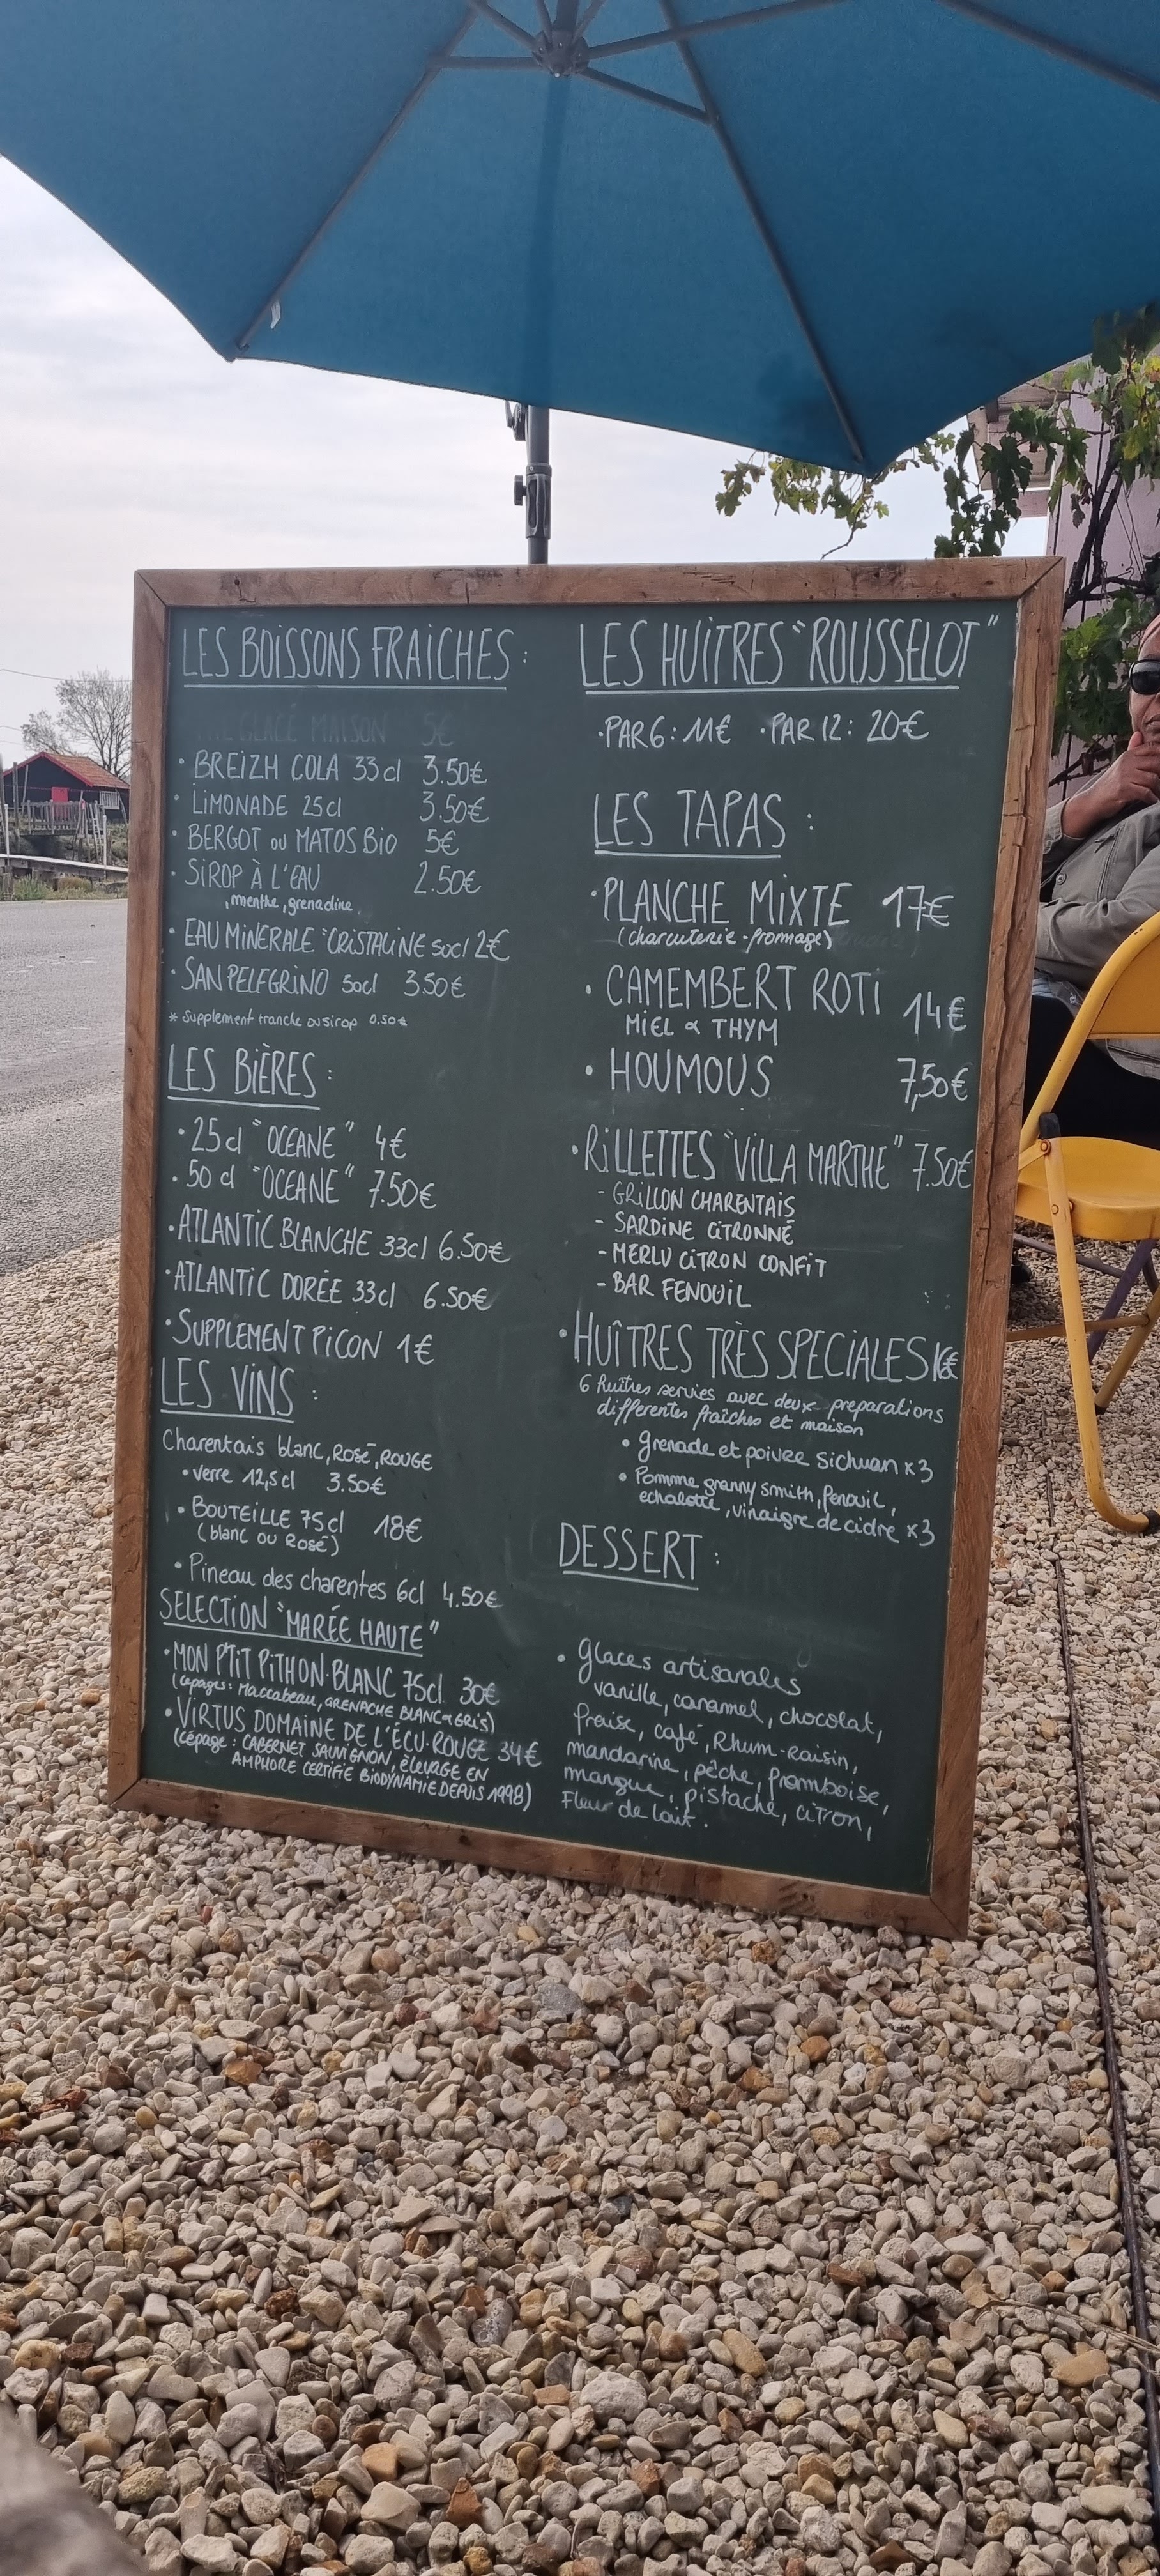 LES BOISSONS FRAICHES :
GLACÉ MAISON 5€
• BREIZH COLA 33cl 3.50€
• LIMONADE 25cl 3.50€
• BERGOT ou MATOS BIO 5€
• SIROP À L'EAU 2.50€
, menthe, grenadine,
• EAU MINERALE "CRISTALINE 50cl 2€
• SAN PELEGRINO 50cl 3.50€
* Supplement tranche ou sirop 0.50€
LES BIÈRES :
• 25cl "OCEANE" 4€
• 50 cl "OCEANE" 7.50€
• ATLANTIC BLANCHE 33cl 6.50€
• ATLANTIC DORÉE 33cl 6.50€
• SUPPLEMENT PICON 1€
LES VINS :
Charentais blanc, Rosé, ROUGE
• verre 12,5cl 3.50€
• BOUTEILLE 75cl 18€
(blanc ou Rosé)
• Pineau des charentes 6cl 4.50€
SELECTION "MARÉE HAUTE"
• MON P'TIT PITHON-BLANC 75cl 30€
(cepages: Maccabeau, GRENACHE BLANC & GRIS)
• VIRTUS DOMAINE DE L'ÉCU-ROUGE 34€
(cépage : CABERNET SAUVIGNON, ÉLEVAGE EN
AMPHORE CERTIFIÉ BIODYNAMIE DEPUIS 1998)
LES HUITRES "ROUSSELOT"
• PAR 6 : 11€ • PAR 12 : 20€
LES TAPAS :
• PLANCHE MIXTE 17€
(charcuterie - fromage)
• CAMEMBERT ROTI 14€
MIEL & THYM
• HOUMOUS 7,50€
• RILLETTES "VILLA MARTHE" 7.50€
- GRILLON CHARENTAIS
- SARDINE CITRONNÉ
- MERLU CITRON CONFIT
- BAR FENOUIL
• HUÎTRES TRÈS SPECIALES
6 huîtres servies avec deux preparations
differentes fraîches et maison
• grenade et poivre sichuan x3
• Pomme granny smith, fenouil,
echalotte, vinaigre de cidre x3
DESSERT :
• Glaces artisanales
vanille, caramel, chocolat,
fraise, café, Rhum-Raisin,
mandarine, pêche, framboise,
mangue, pistache, citron,
Fleur de lait.